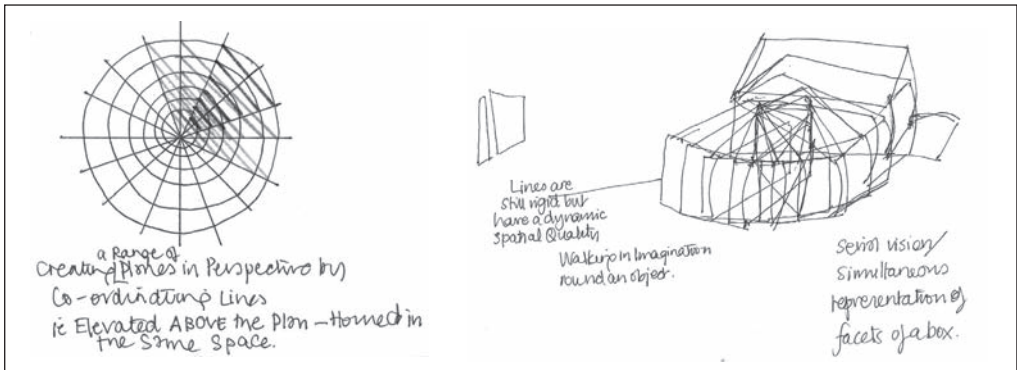 a Range of
Creating Planes in Perspective by
Co-ordinating Lines
ie Elevated ABOVE the Plan – Homed in
the Same Space.
Lines are
still rigid but
have a dynamic
spatial Quality
Walking in Imagination
round an object.
Serial vision/
simultaneous
representation of
facets of a box.